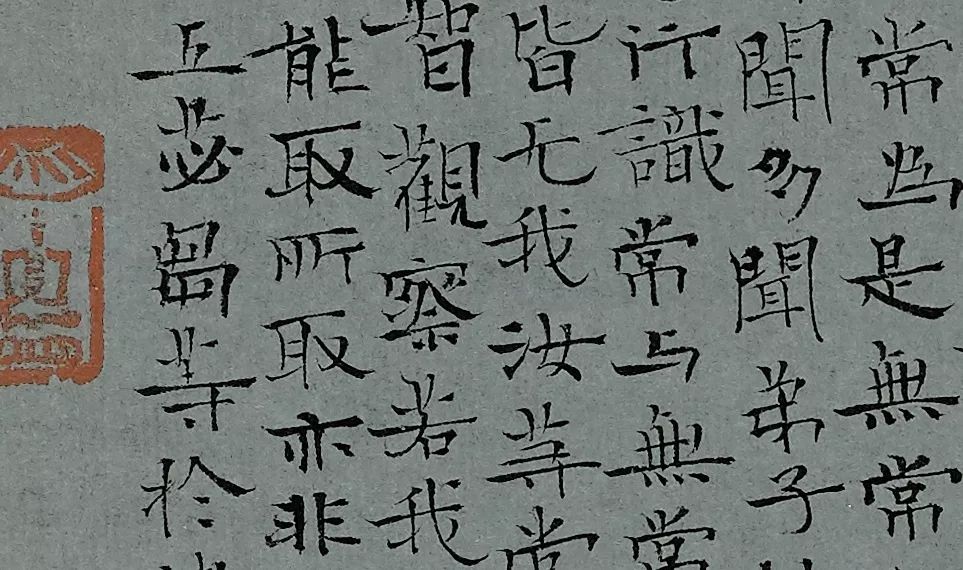 常為是無常
聞多聞弟子
行識常与無常
皆无我汝等常
智觀察若我
能取所取亦非
五苾芻等於